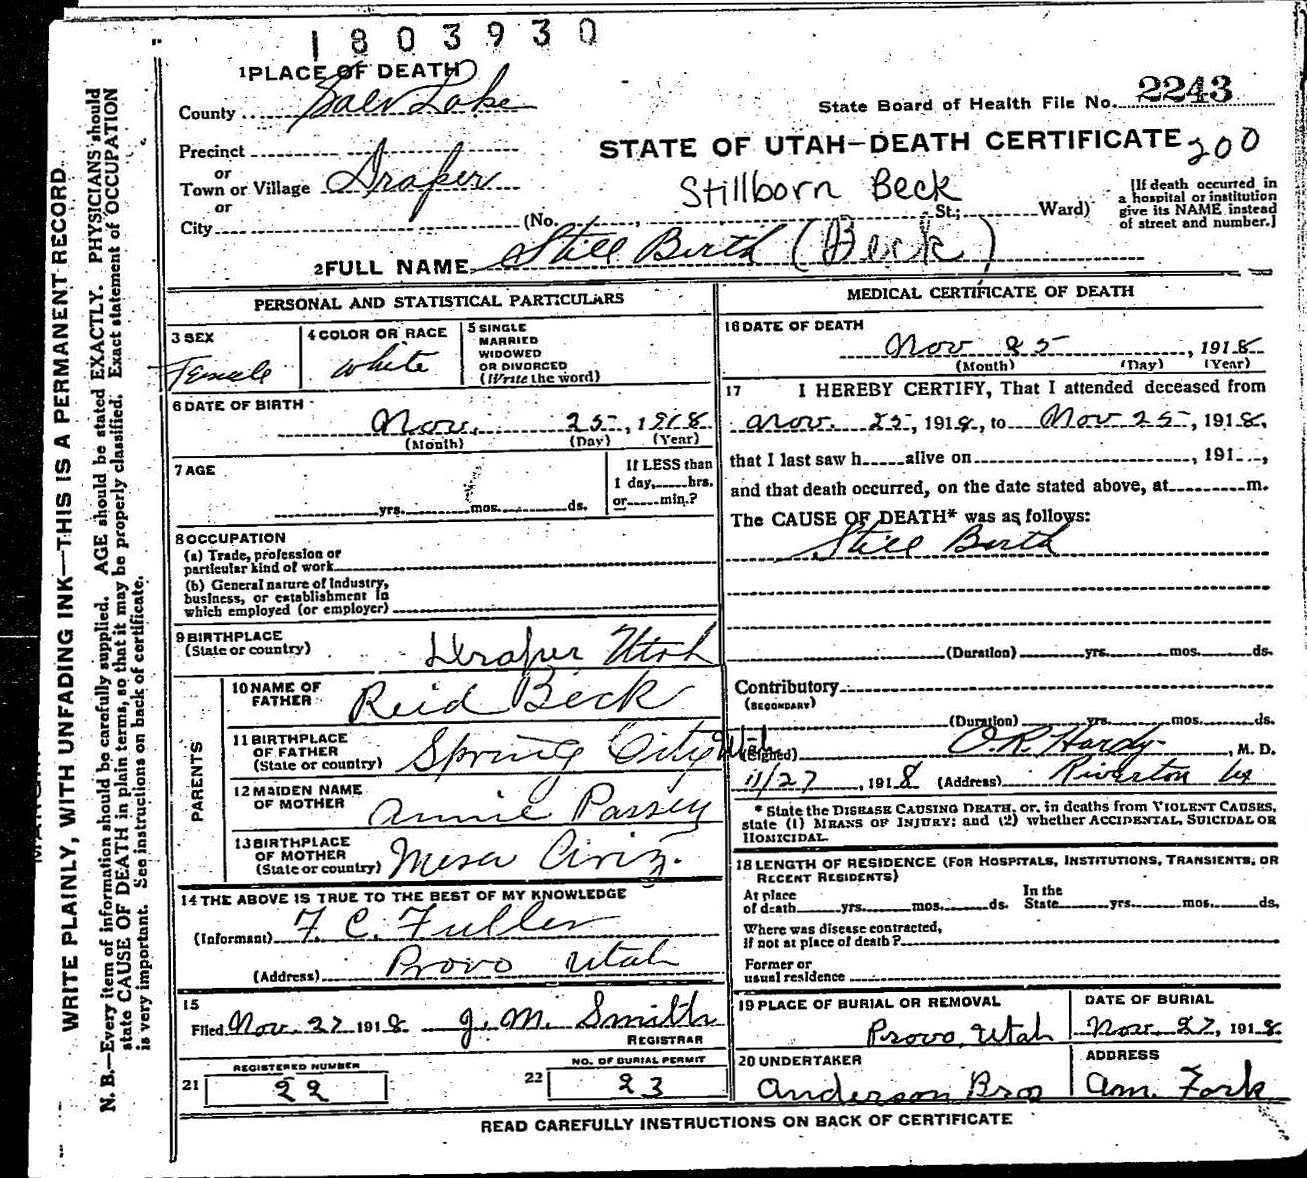 1803930
1 PLACE OF DEATH
County Salt Lake
State Board of Health File No. 2243
Precinct
STATE OF UTAH—DEATH CERTIFICATE 200
or
Town or Village Draper
Stillborn Beck
or
City (No. St.; Ward)
[If death occurred in
a hospital or institution
give its NAME instead
of street and number.]
2 FULL NAME Still Birth (Beck)
PERSONAL AND STATISTICAL PARTICULARS
3 SEX
Female
4 COLOR OR RACE
White
5 SINGLE
MARRIED
WIDOWED
OR DIVORCED
(Write the word)
6 DATE OF BIRTH
Nov. 25, 1918
(Month) (Day) (Year)
7 AGE
yrs. mos. ds.
If LESS than
1 day, hrs.
or min.?
8 OCCUPATION
(a) Trade, profession or
particular kind of work
(b) General nature of Industry,
business, or establishment in
which employed (or employer)
9 BIRTHPLACE
(State or country) Draper Utah
PARENTS
10 NAME OF
FATHER Reid Beck
11 BIRTHPLACE
OF FATHER
(State or country) Spring City Ut
12 MAIDEN NAME
OF MOTHER Annie Passey
13 BIRTHPLACE
OF MOTHER
(State or country) Mesa Ariz.
14 THE ABOVE IS TRUE TO THE BEST OF MY KNOWLEDGE
(Informant) F. C. Fuller
(Address) Provo Utah
15
Filed Nov. 27 1918 J. M. Smith
REGISTRAR
REGISTERED NUMBER
21 22
NO. OF BURIAL PERMIT
22 23
MEDICAL CERTIFICATE OF DEATH
16 DATE OF DEATH
Nov 25, 1918
(Month) (Day) (Year)
17 I HEREBY CERTIFY, That I attended deceased from
Nov. 25, 1918, to Nov 25, 1918,
that I last saw h alive on , 191 ,
and that death occurred, on the date stated above, at m.
The CAUSE OF DEATH* was as follows:
Still Birth
(Duration) yrs. mos. ds.
Contributory
(SECONDARY)
(Duration) yrs. mos. ds.
(Signed) O. R. Hardy, M. D.
11/27, 1918 (Address) Riverton
* State the DISEASE CAUSING DEATH, or, in deaths from VIOLENT CAUSES,
state (1) MEANS OF INJURY; and (2) whether ACCIDENTAL, SUICIDAL OR
HOMICIDAL.
18 LENGTH OF RESIDENCE (FOR HOSPITALS, INSTITUTIONS, TRANSIENTS, OR
RECENT RESIDENTS)
At place
of death yrs. mos. ds.
In the
State yrs. mos. ds.
Where was disease contracted,
if not at place of death?
Former or
usual residence
19 PLACE OF BURIAL OR REMOVAL
Provo, Utah
DATE OF BURIAL
Nov. 27, 1918
20 UNDERTAKER
Anderson Bros
ADDRESS
Am. Fork
READ CAREFULLY INSTRUCTIONS ON BACK OF CERTIFICATE
WRITE PLAINLY, WITH UNFADING INK—THIS IS A PERMANENT RECORD
N. B.—Every item of information should be carefully supplied. AGE should be stated EXACTLY. PHYSICIANS should
state CAUSE OF DEATH in plain terms, so that it may be properly classified. Exact statement of OCCUPATION
is very important. See instructions on back of certificate.